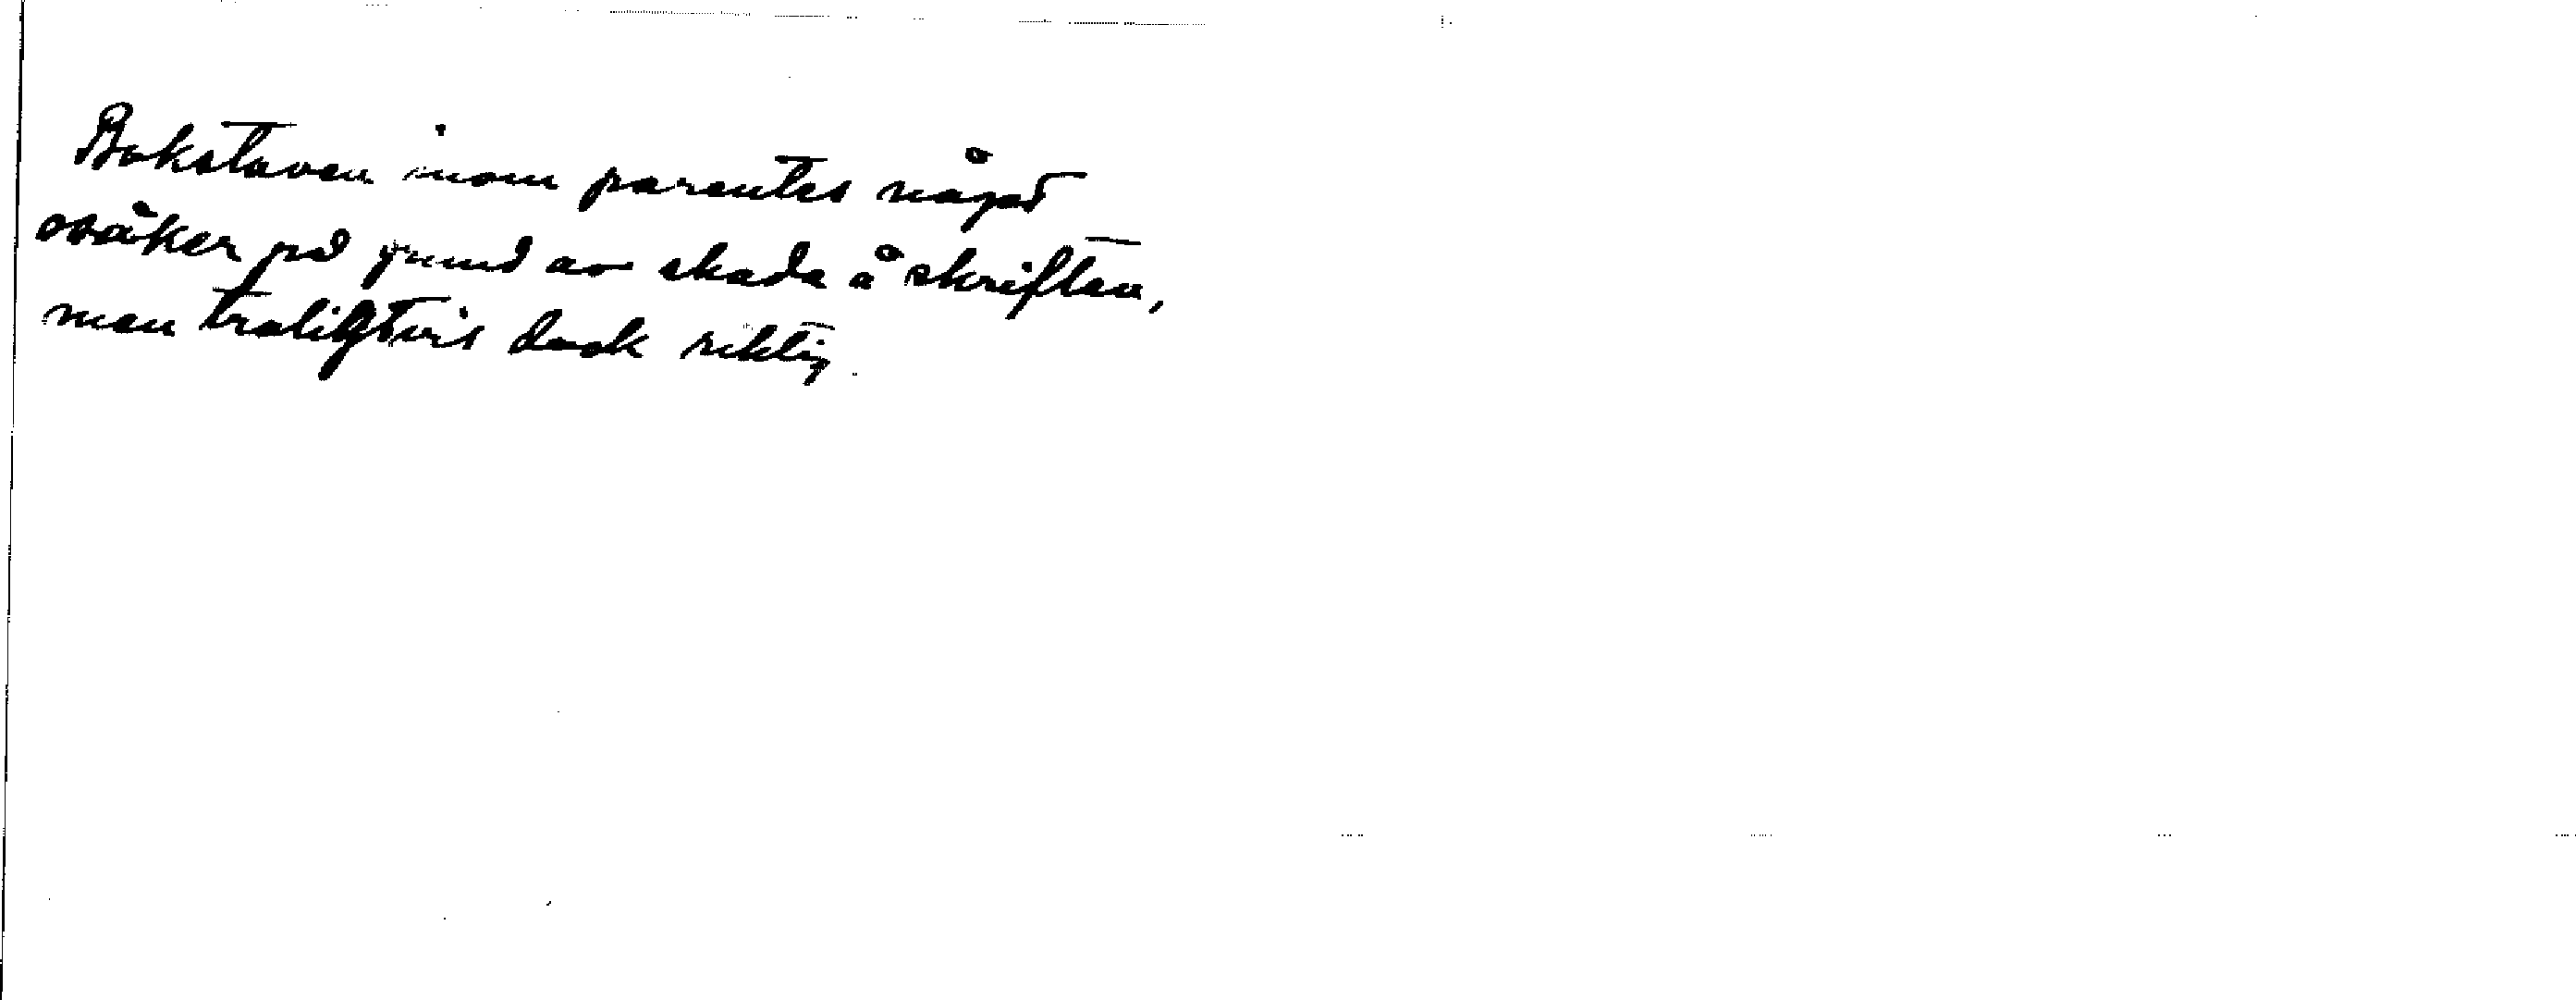 Bokstaven inom parentes något
osäker på grund av skada å skriften,
men troligtvis dock riktig.